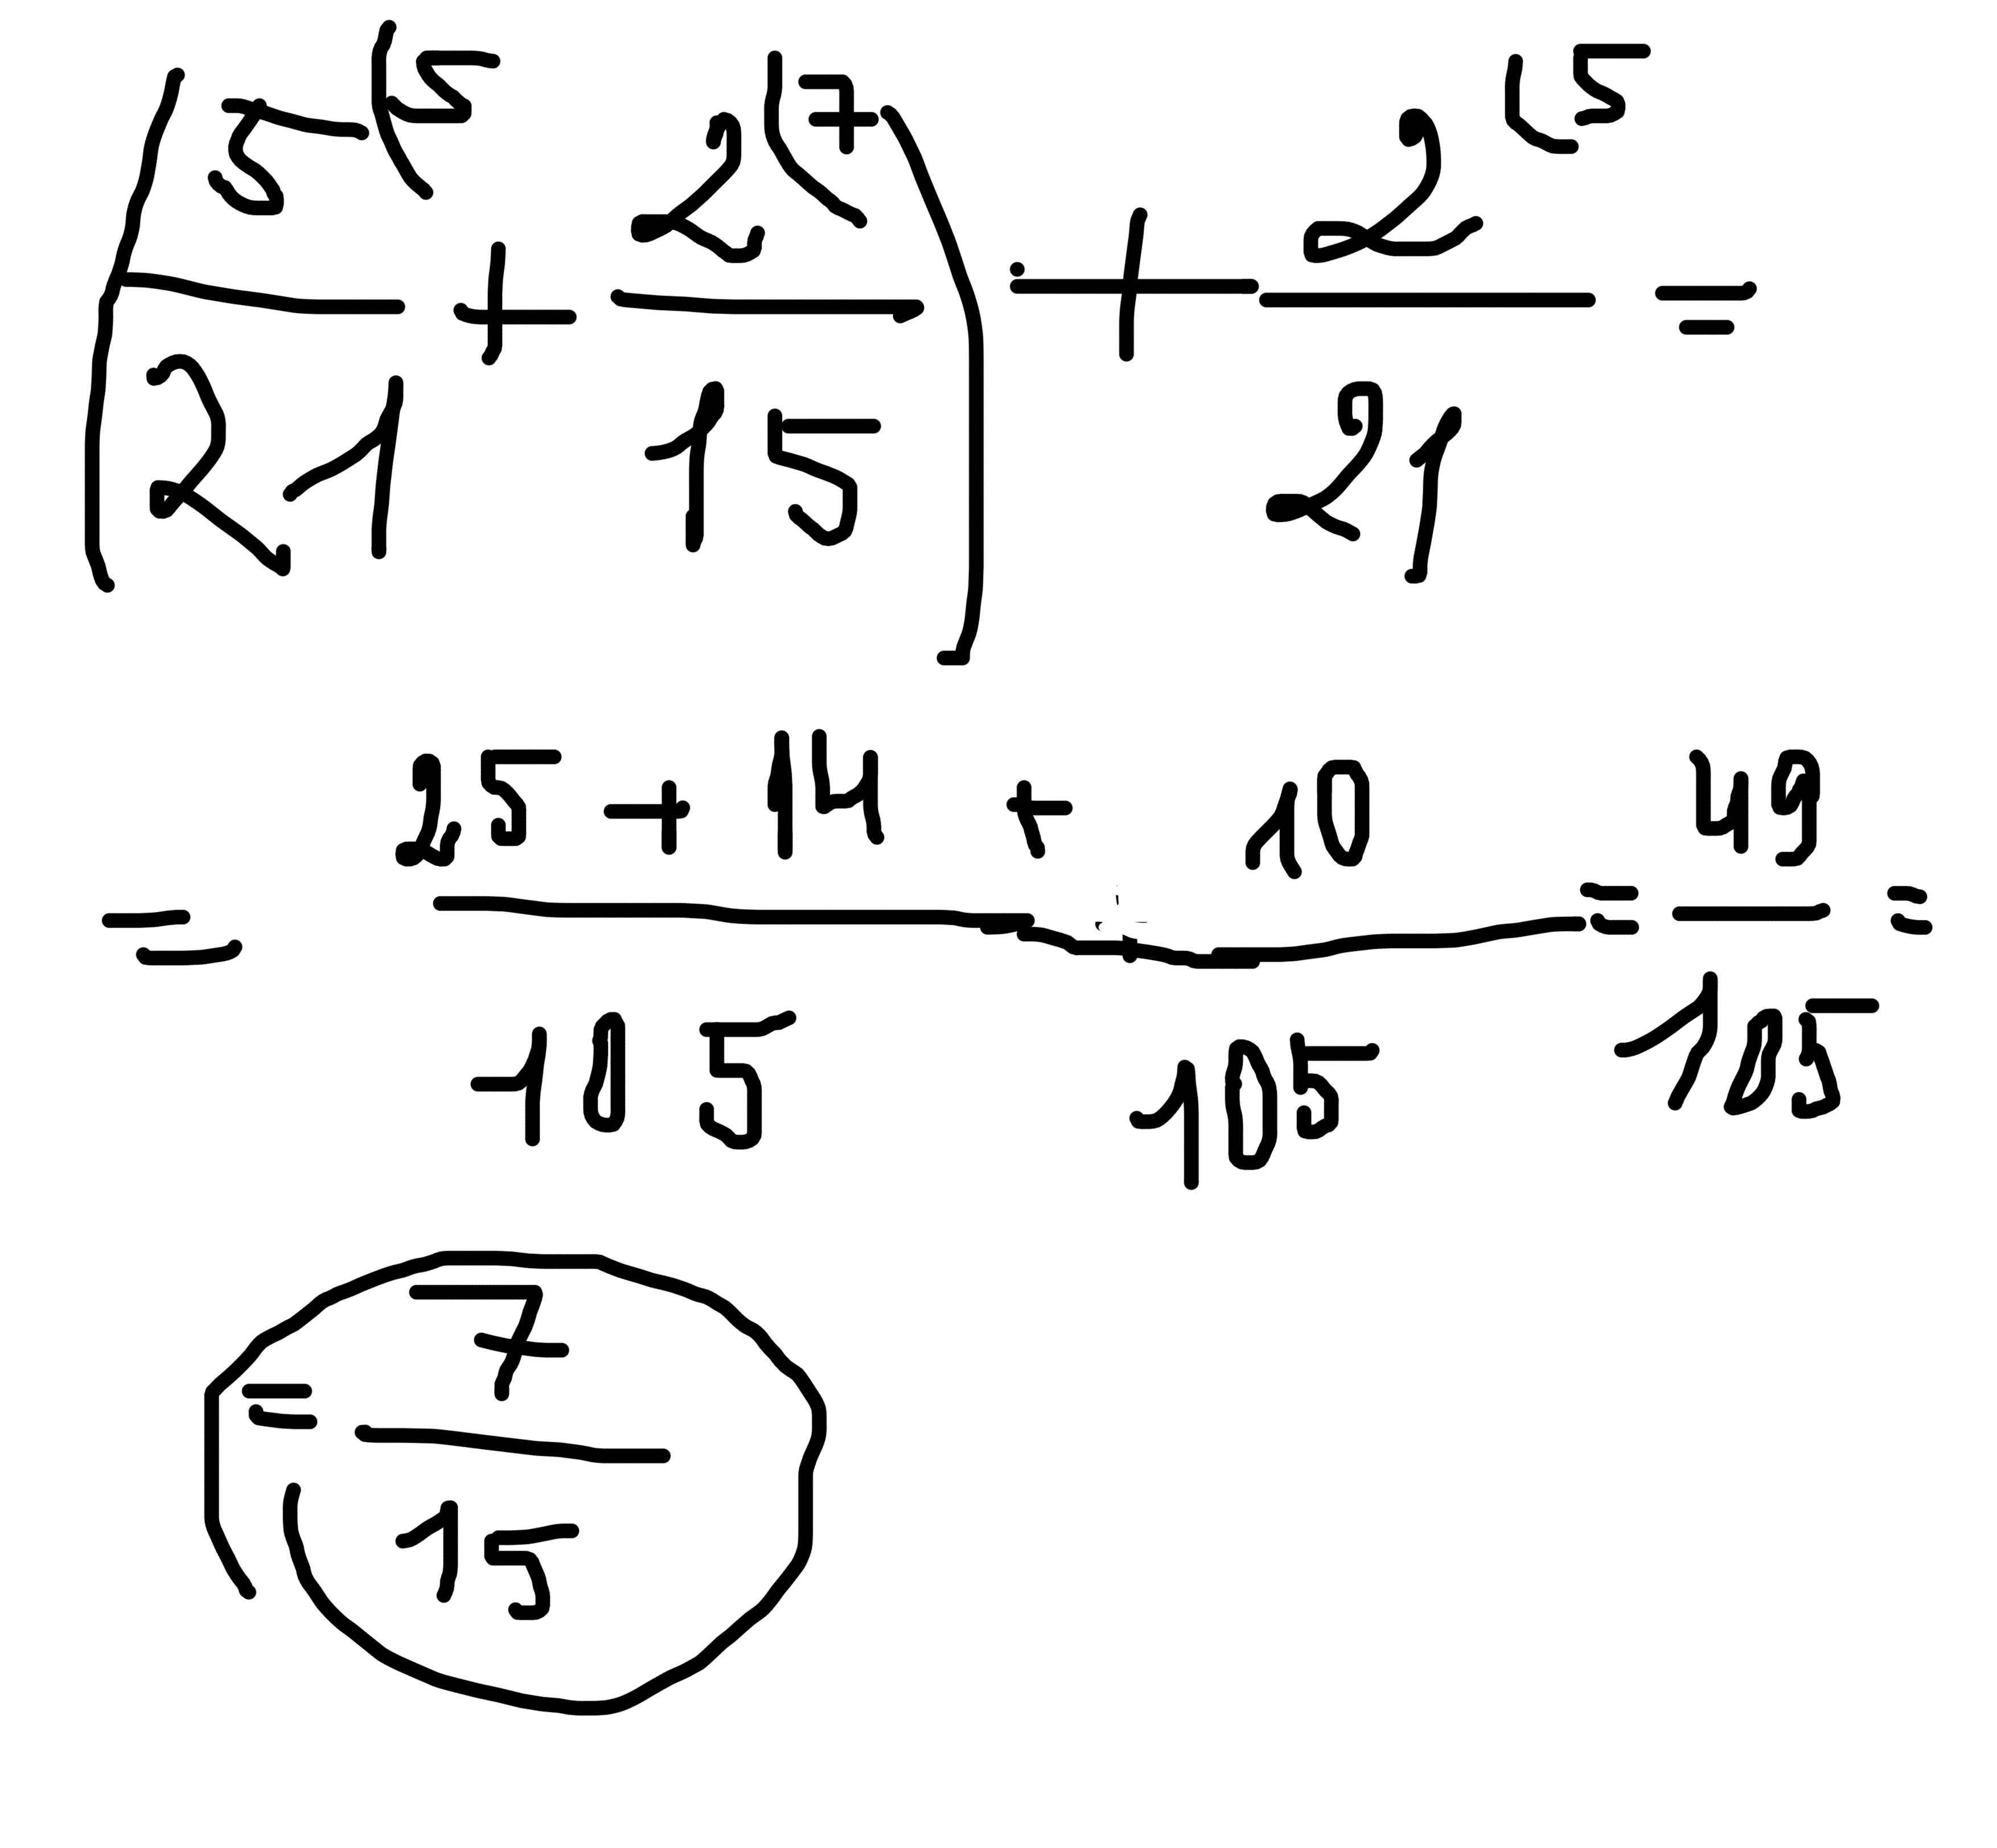 (5⁽⁵/21 + 2⁽⁷/15) + 2⁽⁵/21 =
= 25 + 14 + 10/105 105 = 49/105 =
= 7/15